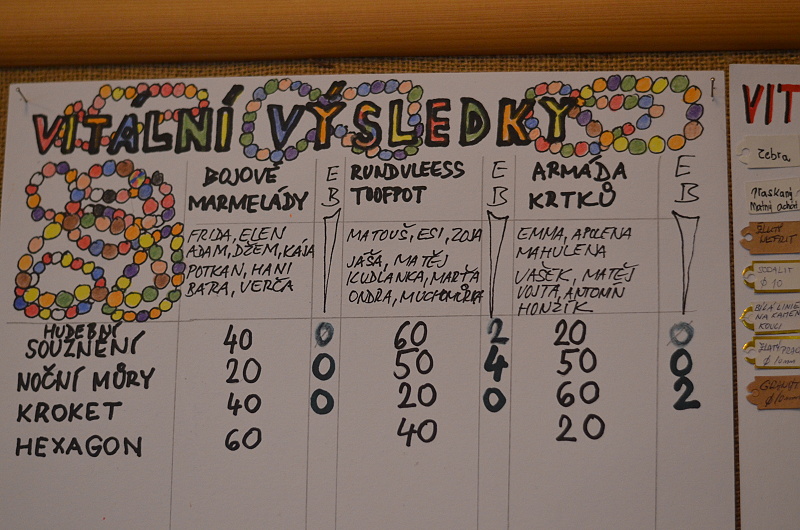 VITÁLNÍ VÝSLEDKY
BOJOVÉ MARMELÁDY
EB
RUNDVLEESS TOOFPOT
EB
ARMÁDA KRTKŮ
EB
FRIDA, ELEN
ADAM, DŽEM, KÁJA
POTKAN, HANI
BÁRA, VERČA
MATOUŠ, ESI, ZOJA
JÁŠA, MATĚJ
KUDLANKA, MARTA
ONDRA, MUCHOMŮRKA
EMMA, APOLENA
MAHULENA
VAŠEK, MATĚJ
VOJTA, ANTONÍN
HONZÍK
HUDEBNÍ
SOUZNĚNÍ 40 0 60 2 20 0
NOČNÍ MŮRY 20 0 50 4 50 0
KROKET 40 0 20 0 60 2
HEXAGON 60 40 20
VIT
zebra
Praskaný
Matný achát
SODALIT
$ 10
BÍLÁ LINIE
NA KAMEN
KOULI
ZLATÝ